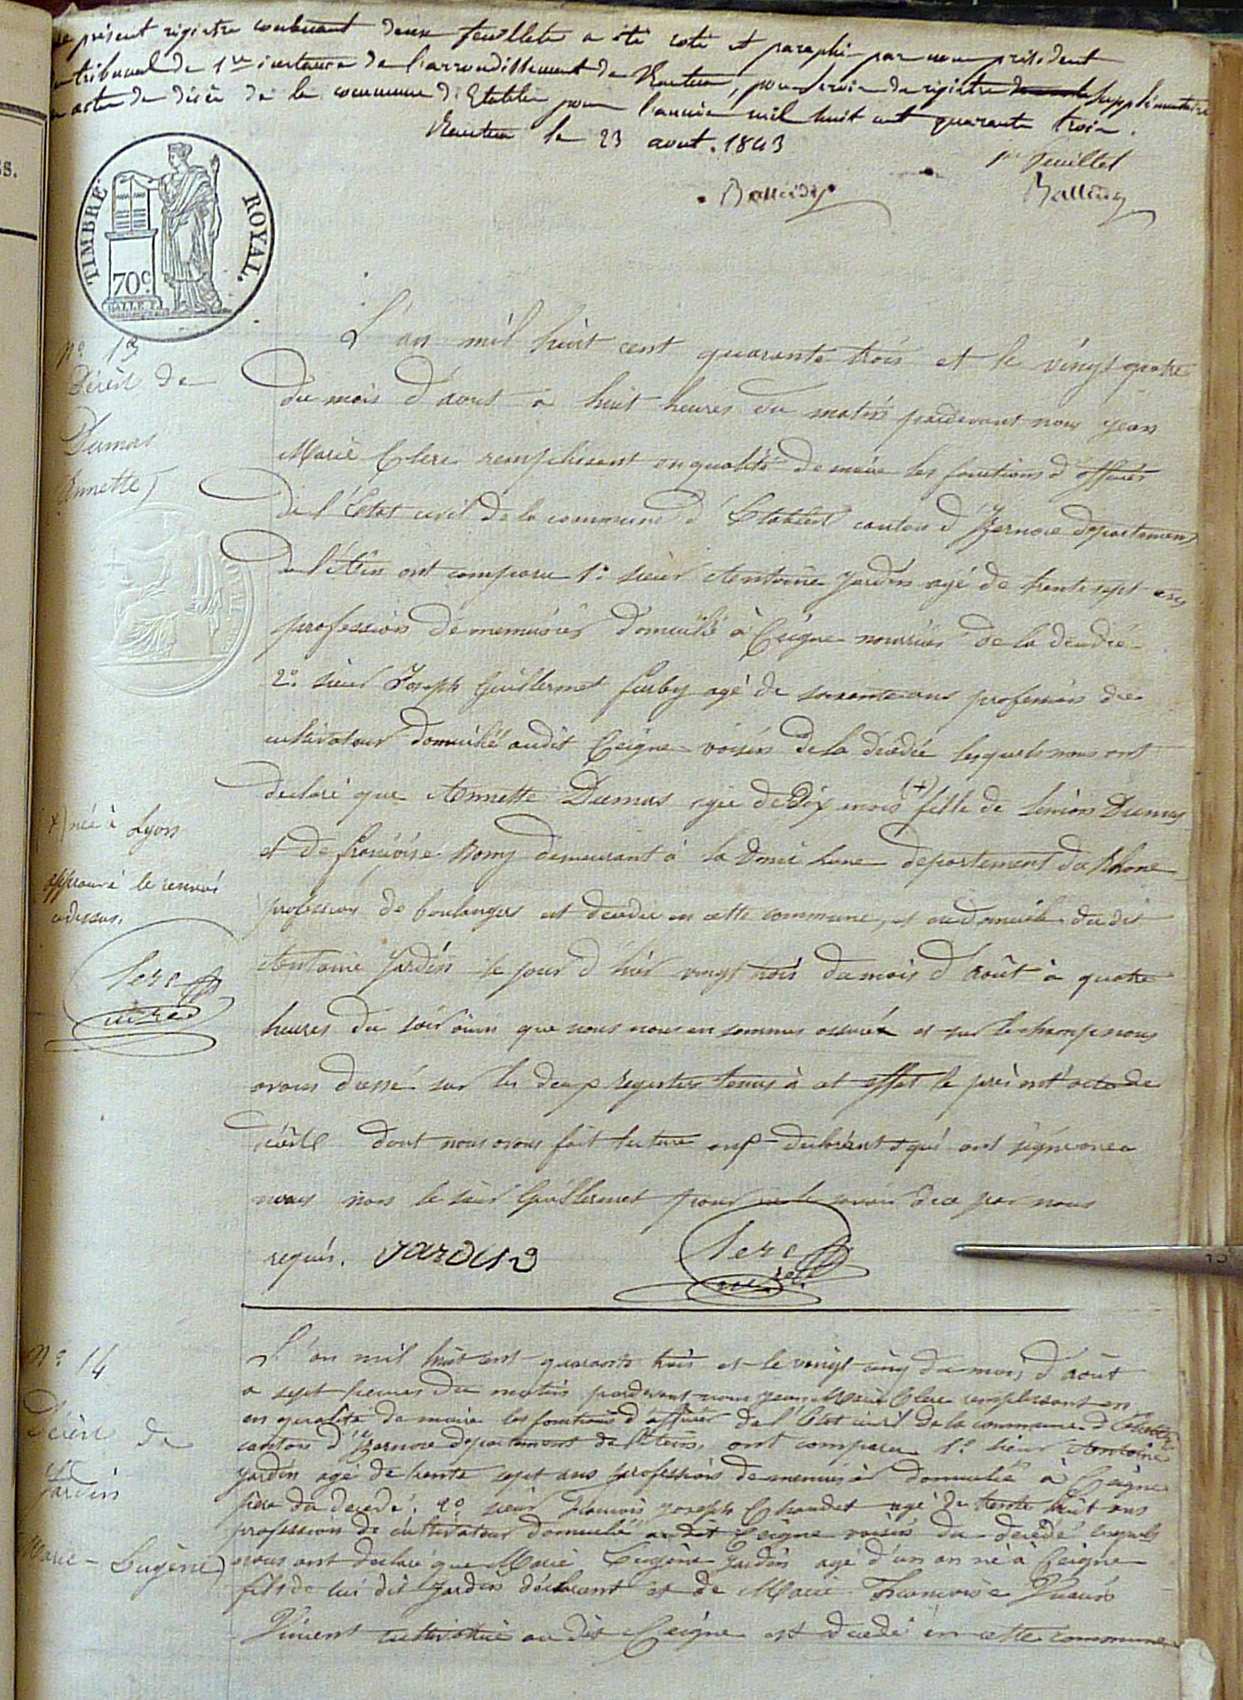 présent registre contenant deux feuillets a été coté et paraphé par nous président
tribunal de 1re instance de l'arrondissement de Nantua, pour servir de registre supplémentaire
actes de décès de la commune d'Etables pour l'année mil huit cent quarante trois.
Nantua le 23 aout. 1843
1er feuillet
TIMBRE ROYAL.
70c
N° 13
Décès de
Dumas
Annette)
L'an mil huit cent quarante trois et le vingt quatre
du mois d'aout a huit heures du matin pardevant nous jean
Marie Clerc remplissant en qualité de maire les fonctions d'officier
de l'Etat civil de la commune d'Etables canton d'Izernore departement
de l'Ain ont comparu 1° sieur Antoine jardin agé de trente sept ans
profession de menuisier domicilié à Ceigne nourricier de la décédée
2° sieur Joseph Guillermet furby agé de soixante ans profession de
cultivateur domicilié audit Ceigne voisin de la décédée lesquels nous ont
declaré que Annette Dumas agée de Dix mois (+) fille de Simon Dumas
et de françoise Romy demeurant à la departement du Rhone
profession de boulangers est décédée en cette commune, et au domicile dudit
Antoine Jardin le jour d'hier vingt trois du mois d'Août à quatre
heures du soir ainsi que nous nous en sommes assuré et sur le champ nous
avons dressé sur les deux registres tenus à cet effet le présent acte de
décès dont nous avons fait lecture aux déclarants qui ont signé avec
nous non le sieur Guillermet pour ne le savoir de ce par nous
requis. JARDIN Clerc
maire
+) née à Lyon
approuvé le renvoi
cidessus.
Clerc
maire
N° 14
Décès de
Jardin
Marie-Eugène)
L'an mil huit cent quarante trois et le vingt cinq du mois d'août
a sept heures du matin pardevant nous jean Marie Clerc remplissant en
en qualité de maire les fonctions d'officier de l'Etat civil de la commune d'Etables
canton d'Izernore departement de l'Ain, ont comparu 1° sieur Antoine
jardin agé de trente sept ans profession de menuisier domicilié à Ceigne
père du décédé. 2° sieur françois joseph Chaudet agé de trente huit ans
profession de cultivateur domicilié audit Ceigne voisin du décédé lesquels
nous ont declaré que Marie Eugène Jardin agé d'un an né à Ceigne
fils de lui dit Jardin déclarant et de Marie Francoise
Vincent cultivatrice au dit Ceigne est décédé en cette commune